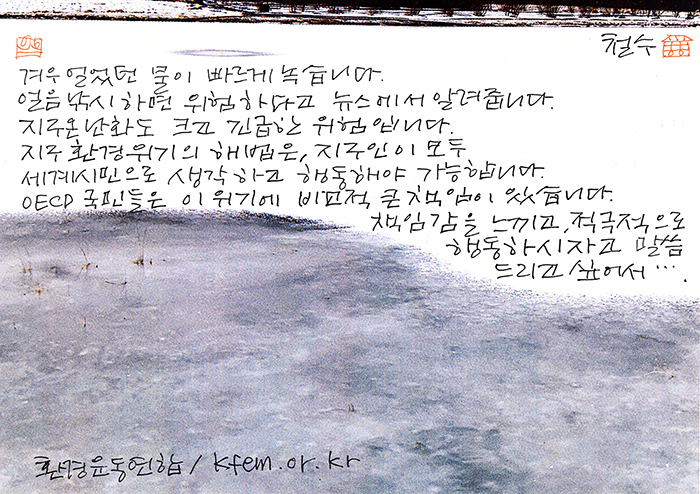 철수
겨우 얼었던 물이 빠르게 녹습니다.
얼음낚시 하면 위험하다고 뉴스에서 알려줍니다.
지구온난화도 크고 긴급한 위험입니다.
지구환경위기의 해법은, 지구인이 모두
세계시민으로 생각하고 행동해야 가능합니다.
OECD 국민들은 이 위기에 비교적 큰 책임이 있습니다.
책임감을 느끼고, 적극적으로
행동하시자고 말씀
드리고 싶어서….
환경운동연합 / kfem.or.kr